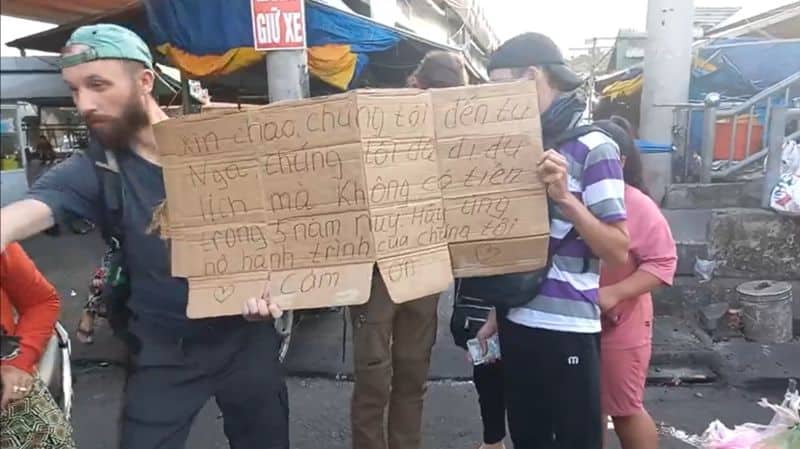 GIỮ XE
xin chao, chúng tôi đến từ
Nga chúng tôi đã di du
lịch mà Không có tiền
trong 5 năm nuy. Hãy ủng
hộ hành trình của chúng tôi
cảm ơn